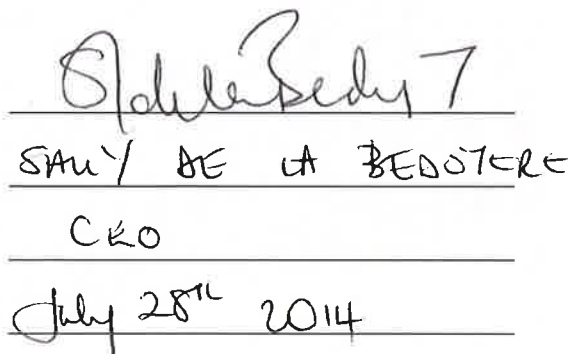 SALLY DE LA BEDOYERE
CEO
July 28th 2014